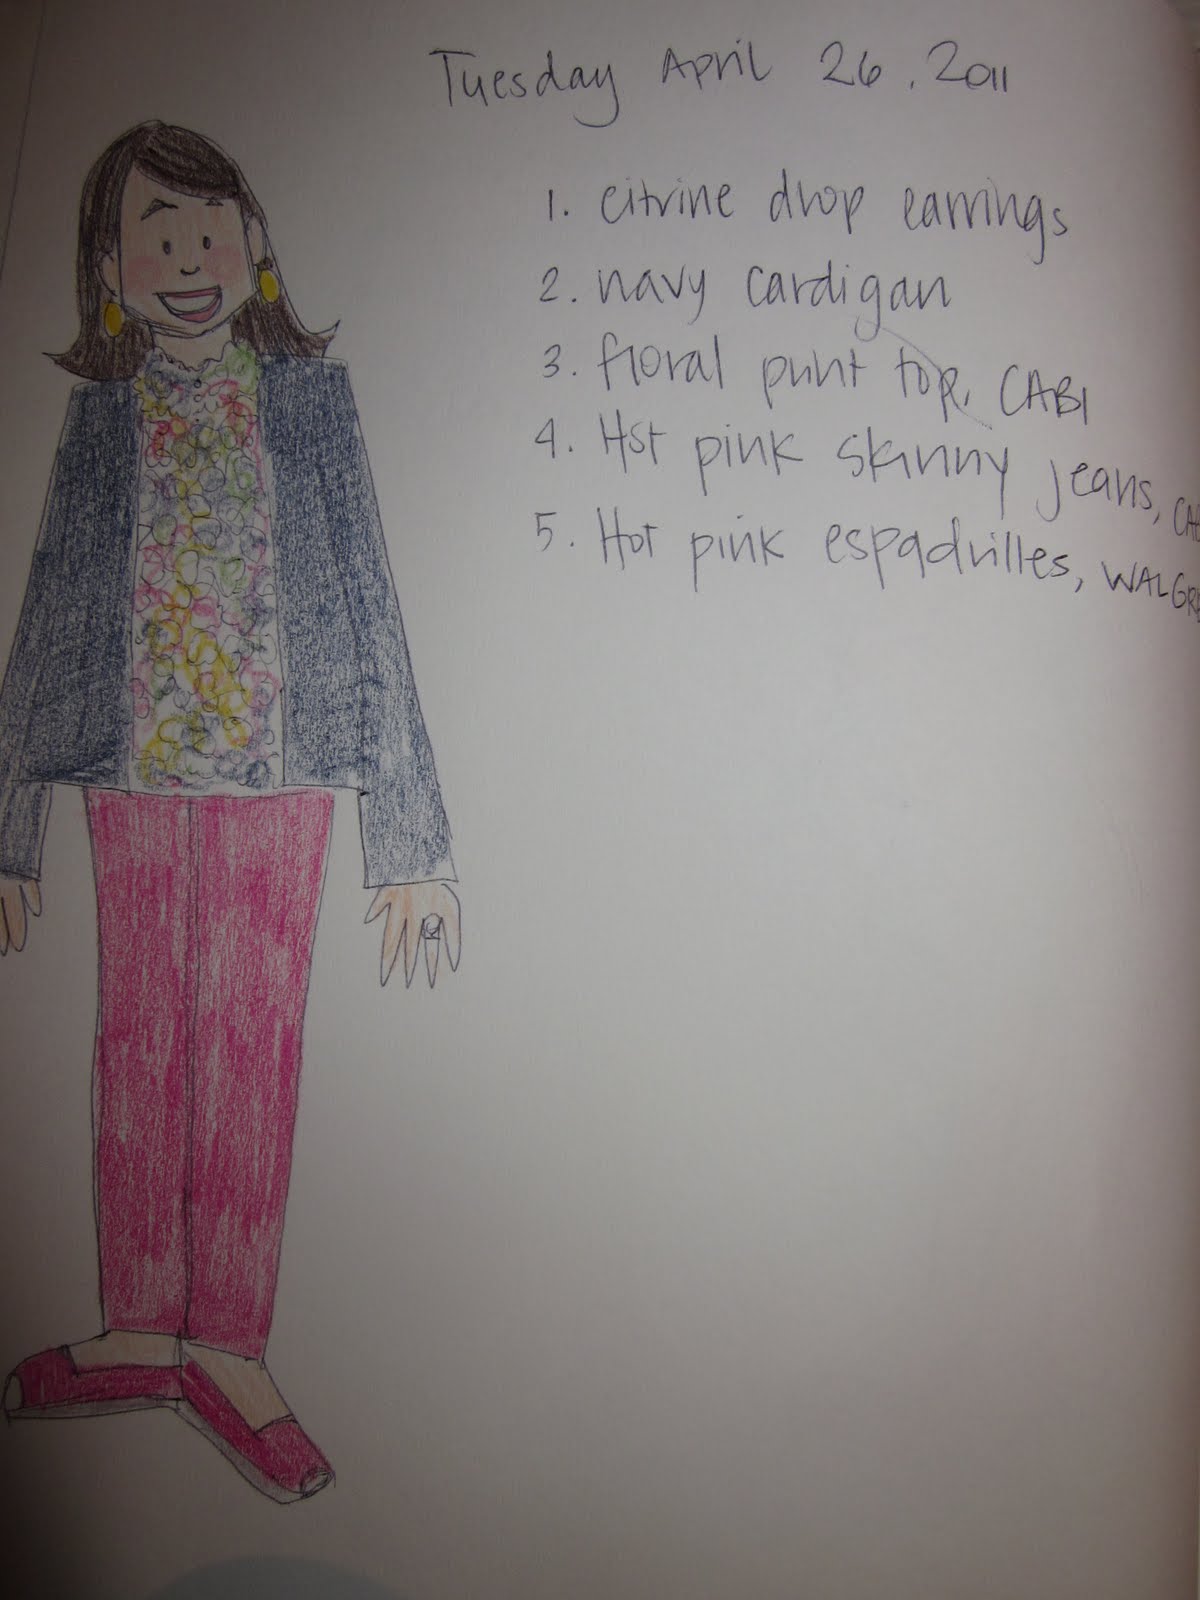 Tuesday April 26, 2011
1. citrine drop earrings
2. navy cardigan
3. floral print top, CABI
4. Hot pink skinny jeans,
5. Hot pink espadrilles,